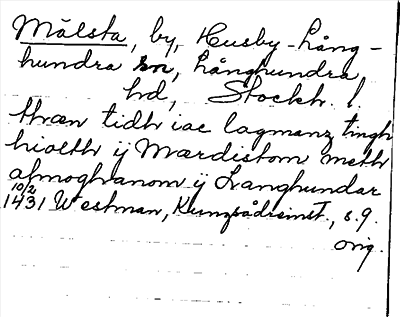 Målsta, by, Husby-Lång-
hundra sn, Långhundra
hd, Stockh. l.
thæn tidh iac lagmanz tingh
hioelth ij Mærdistom meth
almoghanom ij Langhundar
10/2 1431 Westman, Kungsådreinst., s. 9.
orig.